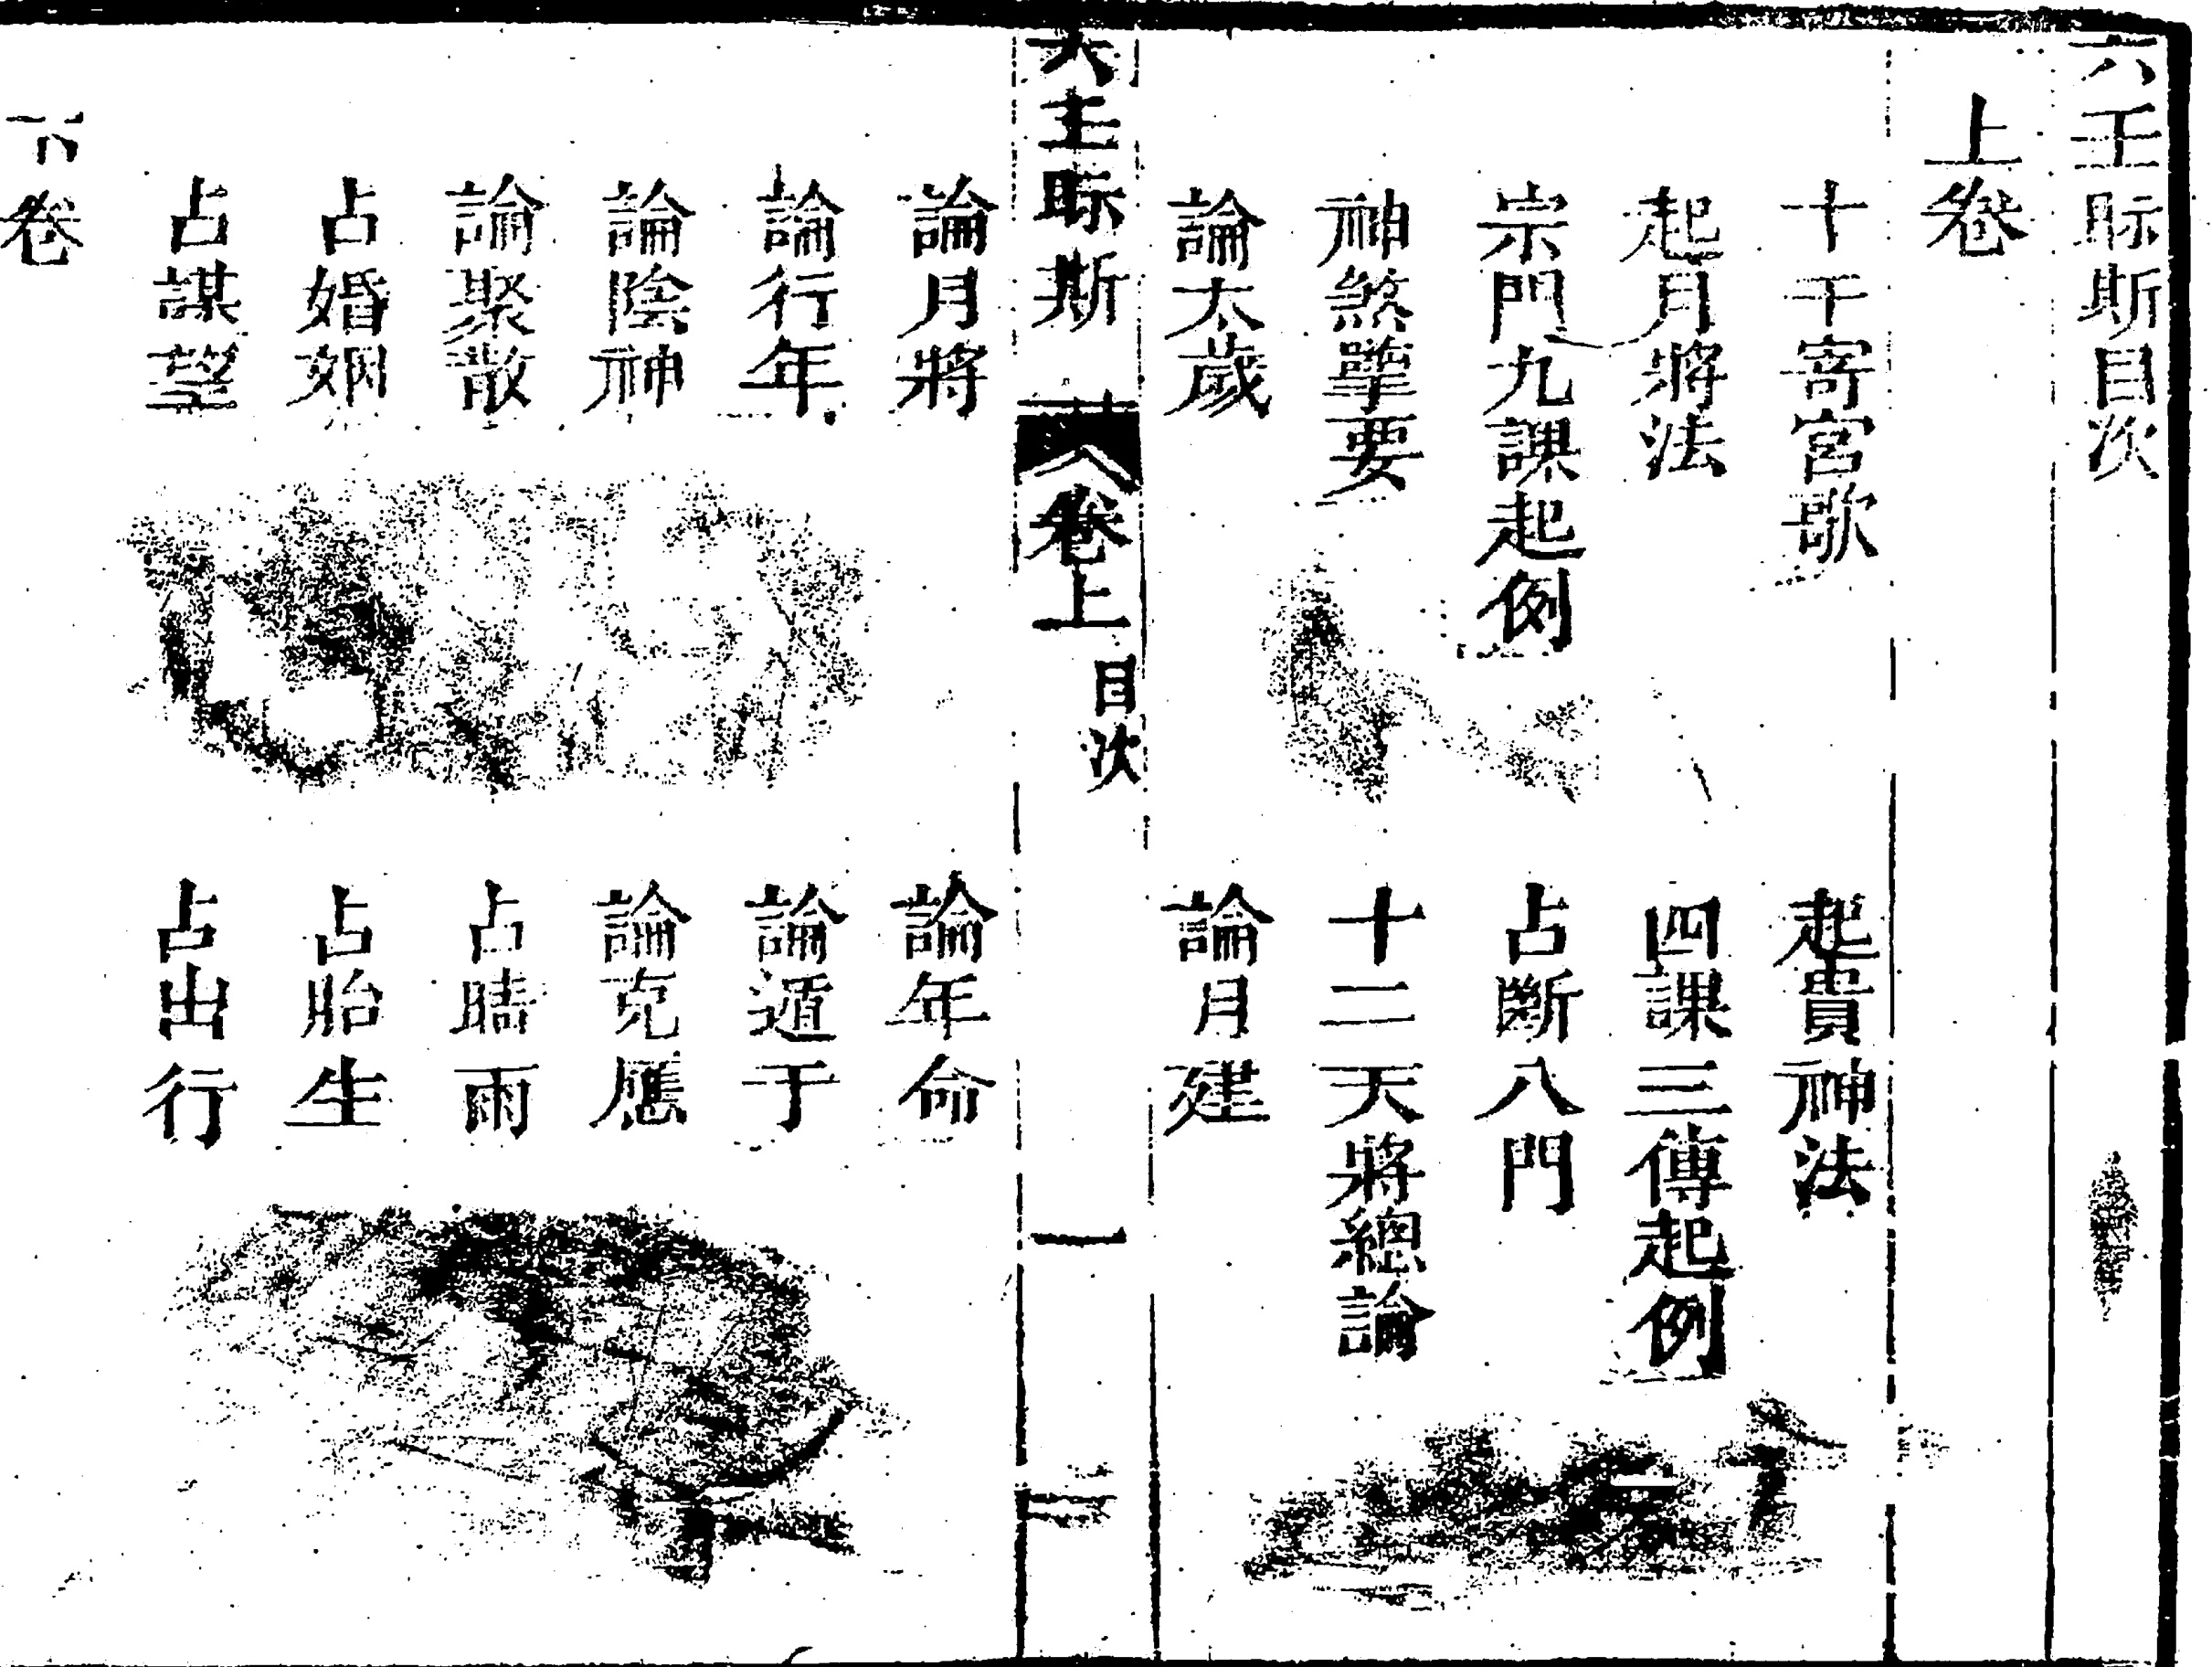 六壬眎斯目次
上卷
十干寄宮歌　起貴神法
起月將法　四課三傳起例
宗門九課起例　占斷八門
神煞要　十二天將總論
論太歲　論月建
六壬眎斯　卷上　目次　一
論月將　論年命
論行年　論遁于
論陰神　論克應
論聚散　占晴雨
占婚姻　占胎生
占謀望　占出行
下卷